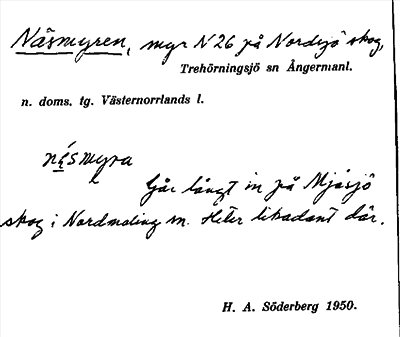 Näsmyren, myr N 26 på Nordsjö skog,
Trehörningsjö sn Ångermanl.
n. doms. tg. Västernorrlands l.
nę́smyra
Går långt in på Mjösjö
skog i Nordmaling sn. Heter likadant där.
H. A. Söderberg 1950.